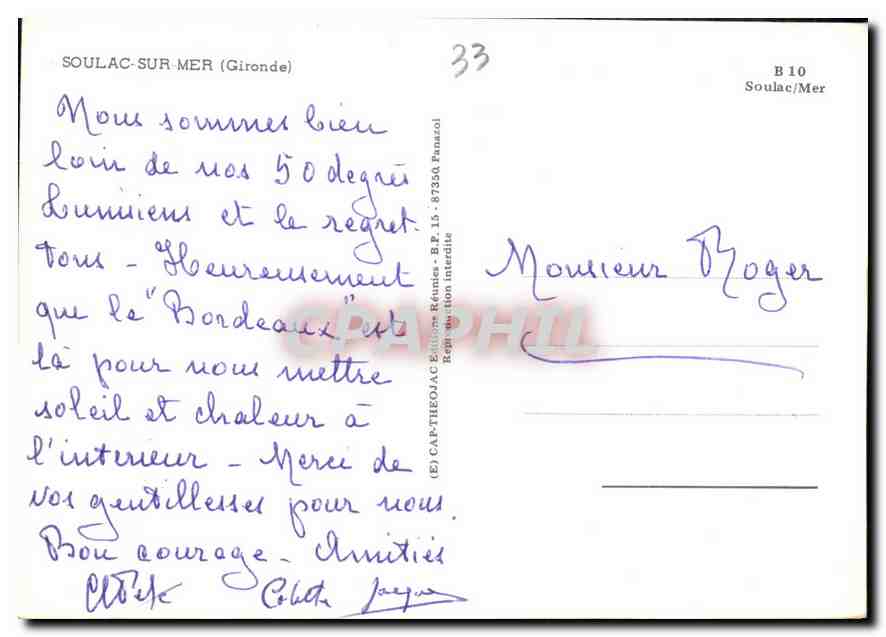 SOULAC-SUR-MER (Gironde)
33
B 10
Soulac/Mer
Nous sommes bien
loin de nos 50 degrés
tunisiens et le regret-
tons - Heureusement
que le "Bordeaux" est
là pour nous mettre
soleil et chaleur à
l'interieur - Merci de
vos gentillesses pour nous.
Bon courage - Amitiés
Colette Jacques
(E) CAP-THEOJAC Editions Réunies - B.P. 15 - 87350 Panazol
Reproduction interdite
Monsieur Roger
CPAPHIL